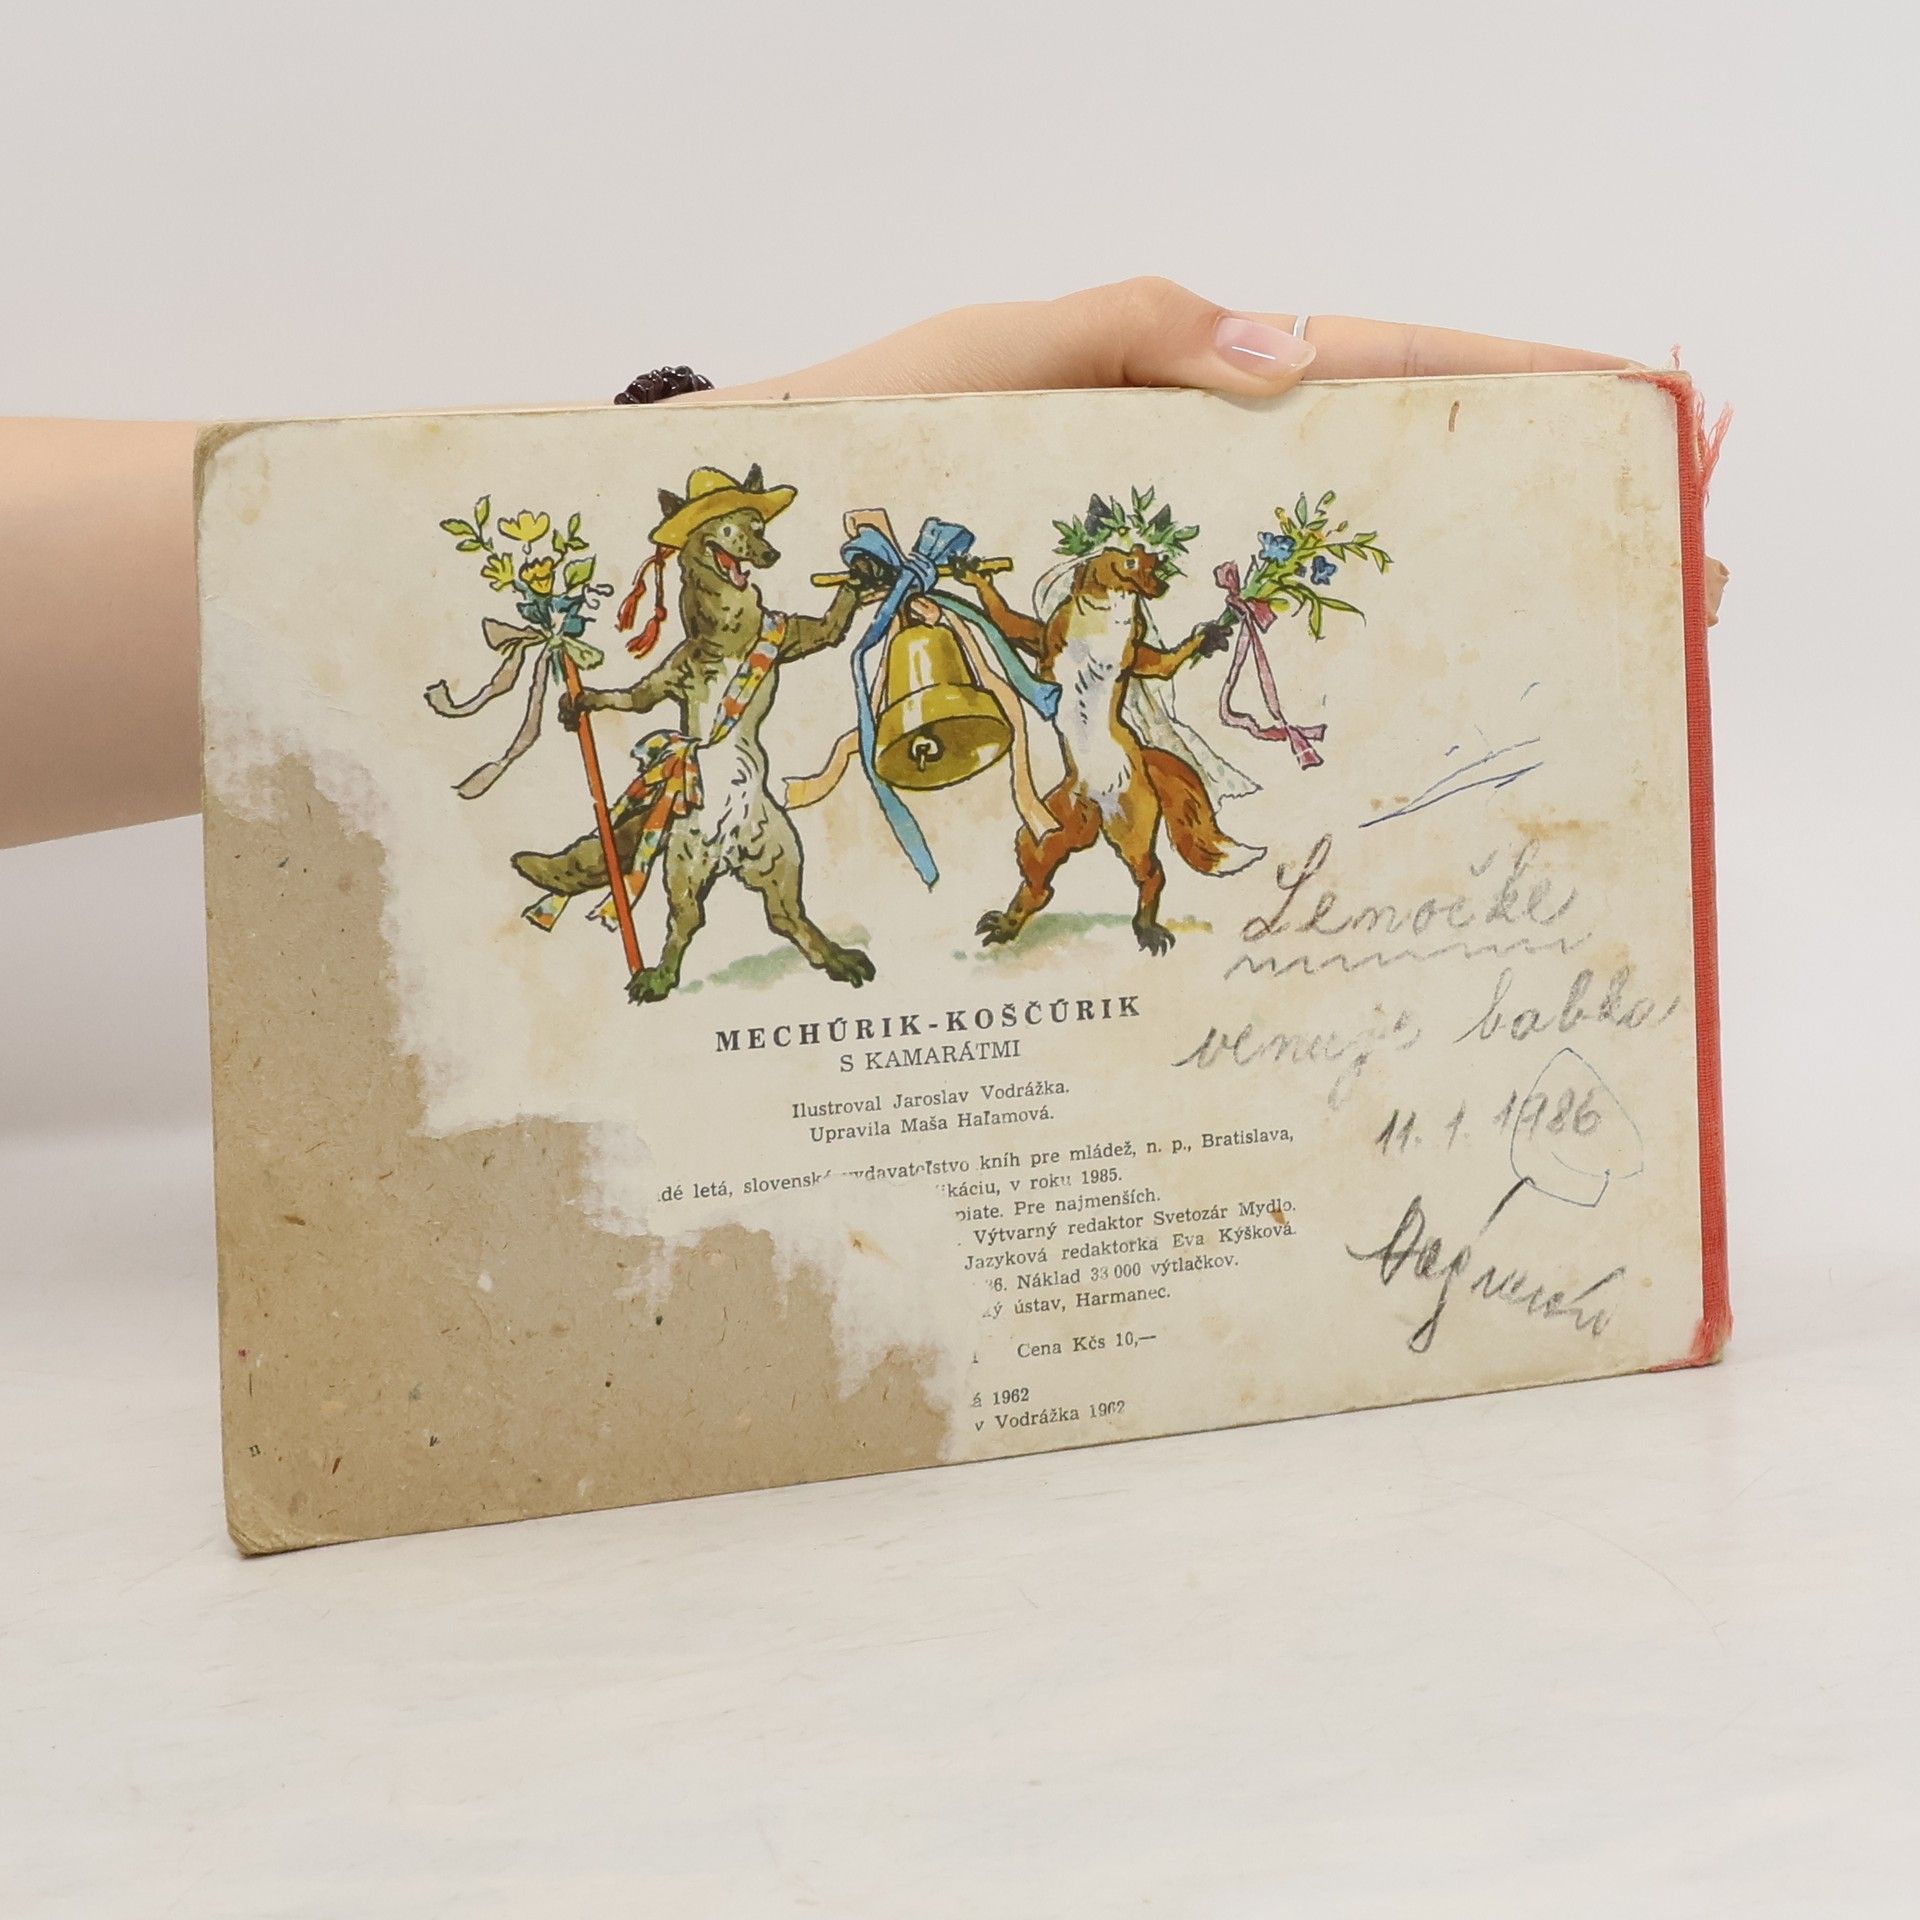 MECHÚRIK-KOŠČÚRIK
S KAMARÁTMI
Ilustroval Jaroslav Vodrážka.
Upravila Maša Haľamová.
dé letá, slovenské vydavateľstvo kníh pre mládež, n. p., Bratislava,
káciu, v roku 1985.
piate. Pre najmenších.
. Výtvarný redaktor Svetozár Mydlo.
Jazyková redaktorka Eva Kýšková.
86. Náklad 33 000 výtlačkov.
ký ústav, Harmanec.
Cena Kčs 10,—
á 1962
v Vodrážka 1962
Lenočke
venuje babka
11. 1. 1986